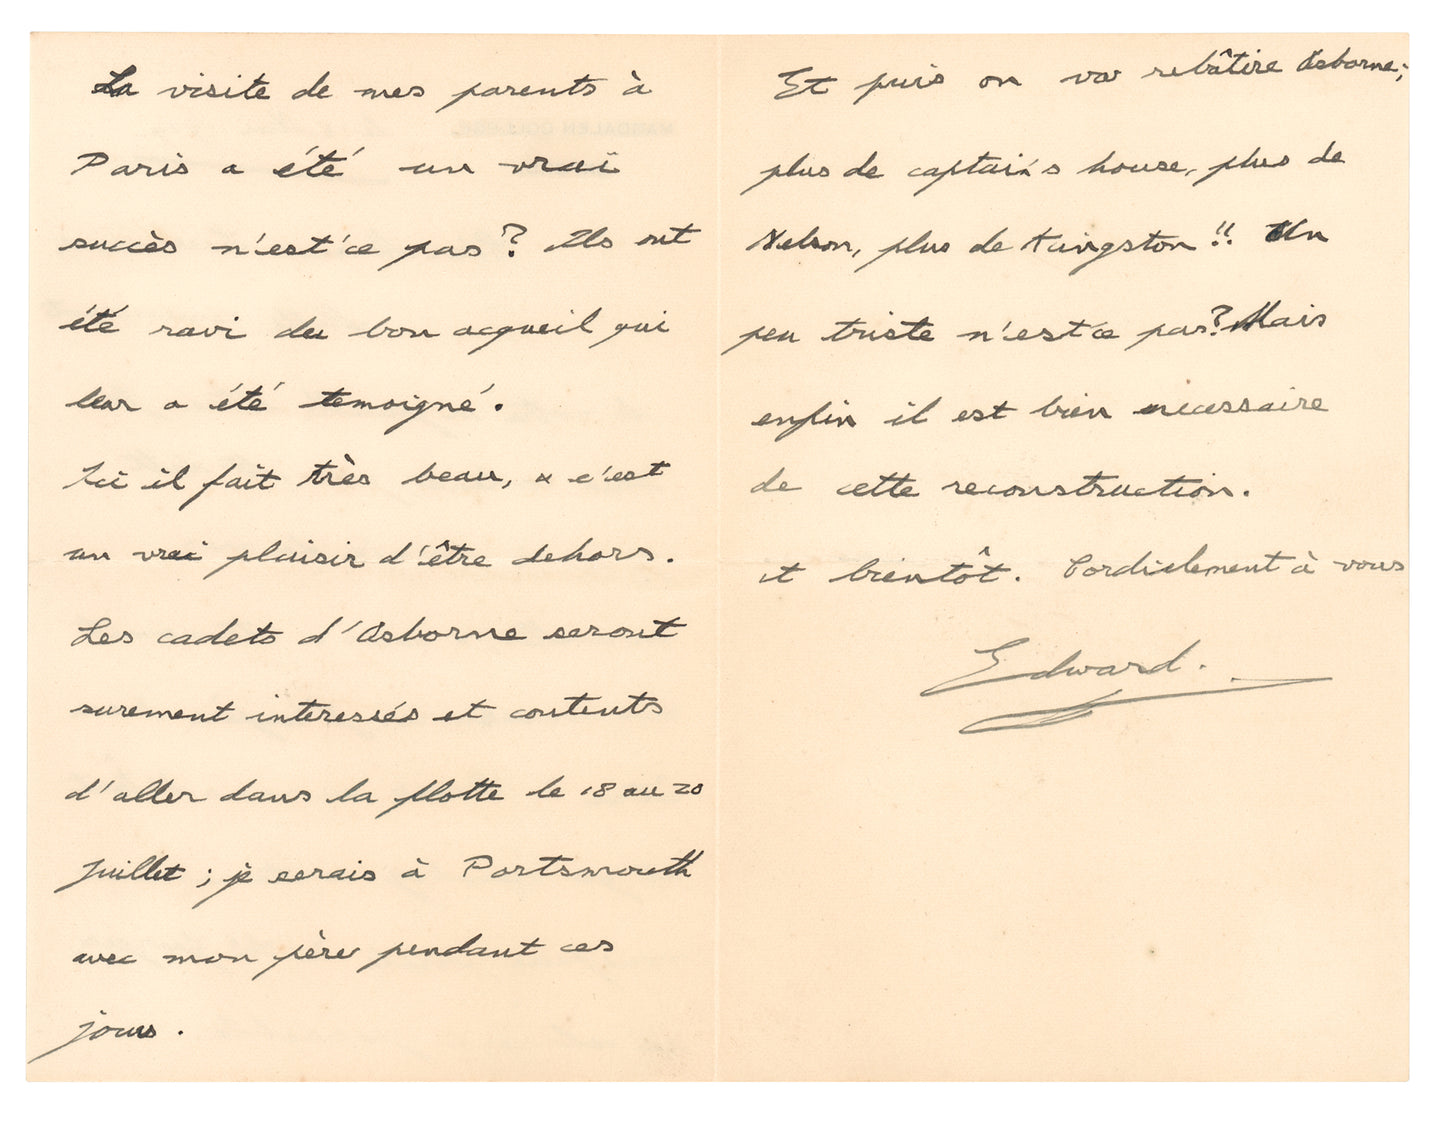 La visite de mes parents à
Paris a été un vrai
succès n'est'ce pas? Ils ont
été ravi du bon acqueil qui
leur a été temoigné.
Ici il fait très beau, & c'est
un vrai plaisir d'être dehors.
Les cadets d'Osborne seront
surement interessés et contents
d'aller dans la flotte le 18 au 20
Juillet; je serais à Portsmouth
avec mon père pendant ces
jours.
Et puis on va rebâtire Osborne;
plus de captain's house, plus de
Nelson, plus de Kingston!! Un
peu triste n'est'ce pas? Mais
enfin il est bien necessaire
de cette reconstruction.
et bientôt. Cordielement à vous
Edward.
MAGDALEN COLLEGE